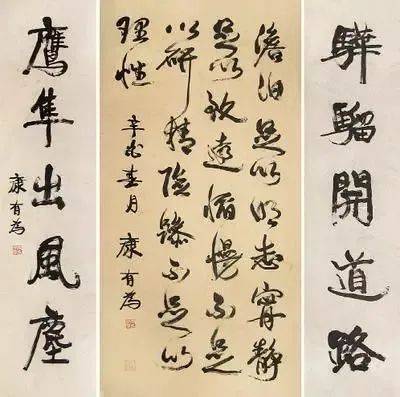 驊騮開道路
澹泊足以明志寧靜
足以致遠慆慢不足
以研精險躁不足以
理性
春月 康有為
鷹隼出風塵
康有為